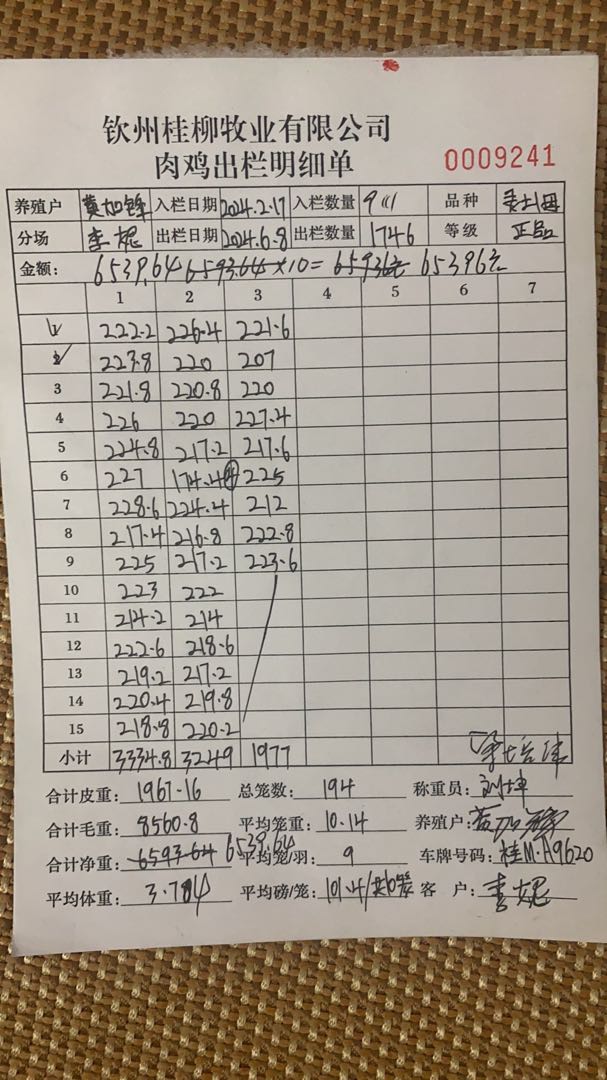 钦州桂柳牧业有限公司
肉鸡出栏明细单 0009241
养殖户 莫加锋 入栏日期 2024.2.17 入栏数量 9111 品种
分场 李妮 出栏日期 2024.6.8 出栏数量 1746 等级 正品
金额: 6539.64 6593.64×10= 65936元 65396元
1 2 3 4 5 6 7
1 222.2 226.4 221.6
2 223.8 220 207
3 221.8 220.8 220
4 226 220 227.4
5 224.8 217.2 217.6
6 227 174.4④ 225
7 228.6 224.4 212
8 217.4 216.8 222.8
9 225 217.2 223.6
10 223 222
11 214.2 214
12 222.6 218.6
13 219.2 217.2
14 220.4 219.8
15 218.8 220.2
小计 3334.8 3249 1977
合计皮重: 1967.16 总笼数: 194 称重员:
合计毛重: 8560.8 平均笼重: 10.14 养殖户:
合计净重: 6593.64 6539.64 平均笼/羽: 9 车牌号码: 桂M·A9620
平均体重: 3.784 平均磅/笼: 101.4 客 户: 李妮